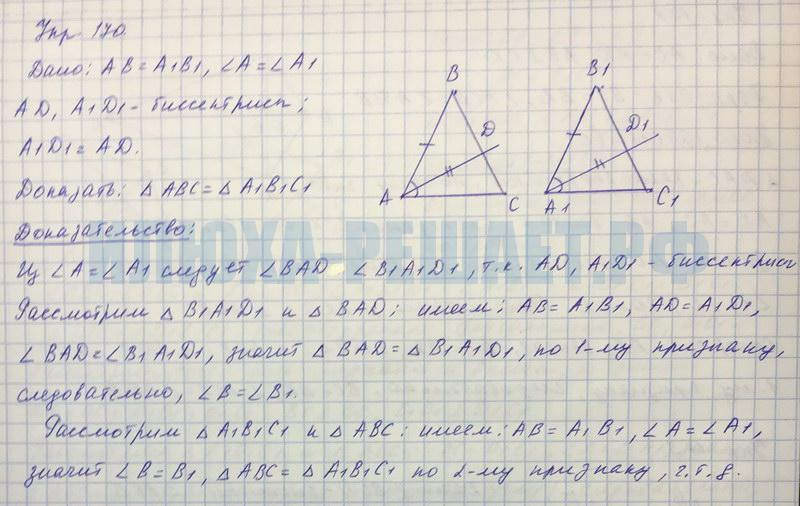 Упр 170.
Дано: AB = A1B1, ∠A = ∠A1
AD, A1D1 - биссектрисы;
A1D1 = AD.
Доказать: △ABC = △A1B1C1
Доказательство:
Из ∠A = ∠A1 следует ∠BAD ∠B1A1D1, т.к. AD, A1D1 - биссектрисы
Рассмотрим △B1A1D1 и △BAD; имеем: AB = A1B1, AD = A1D1,
∠BAD = ∠B1A1D1, значит △BAD = △B1A1D1, по 1-му признаку,
следовательно, ∠B = ∠B1.
Рассмотрим △A1B1C1 и △ABC: имеем: AB = A1B1, ∠A = ∠A1,
значит ∠B = B1, △ABC = △A1B1C1 по 2-му признаку, ч.т.д.
B
D
A
C
B1
D1
A1
C1